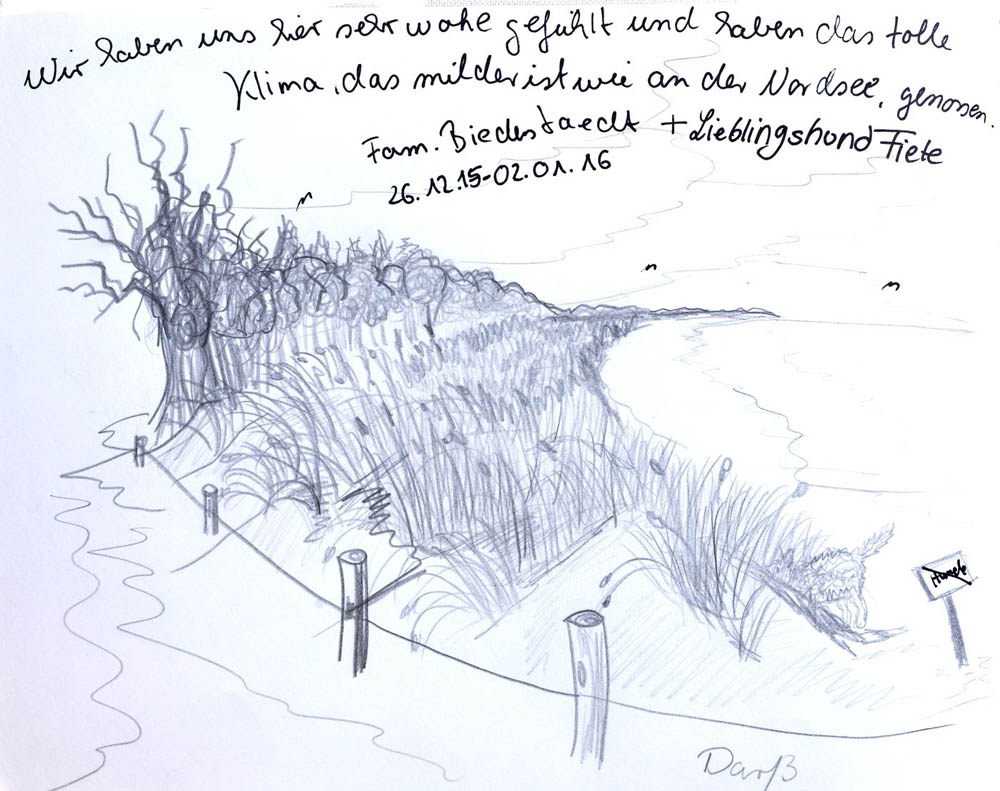 Wir haben uns hier sehr wohe gefühlt und haben das tolle
Klima, das milder ist wie an der Nordsee, genossen.
Fam. Biederstaedt + Lieblingshund Fiete
26.12.15-02.01.16
Hunde
Darß